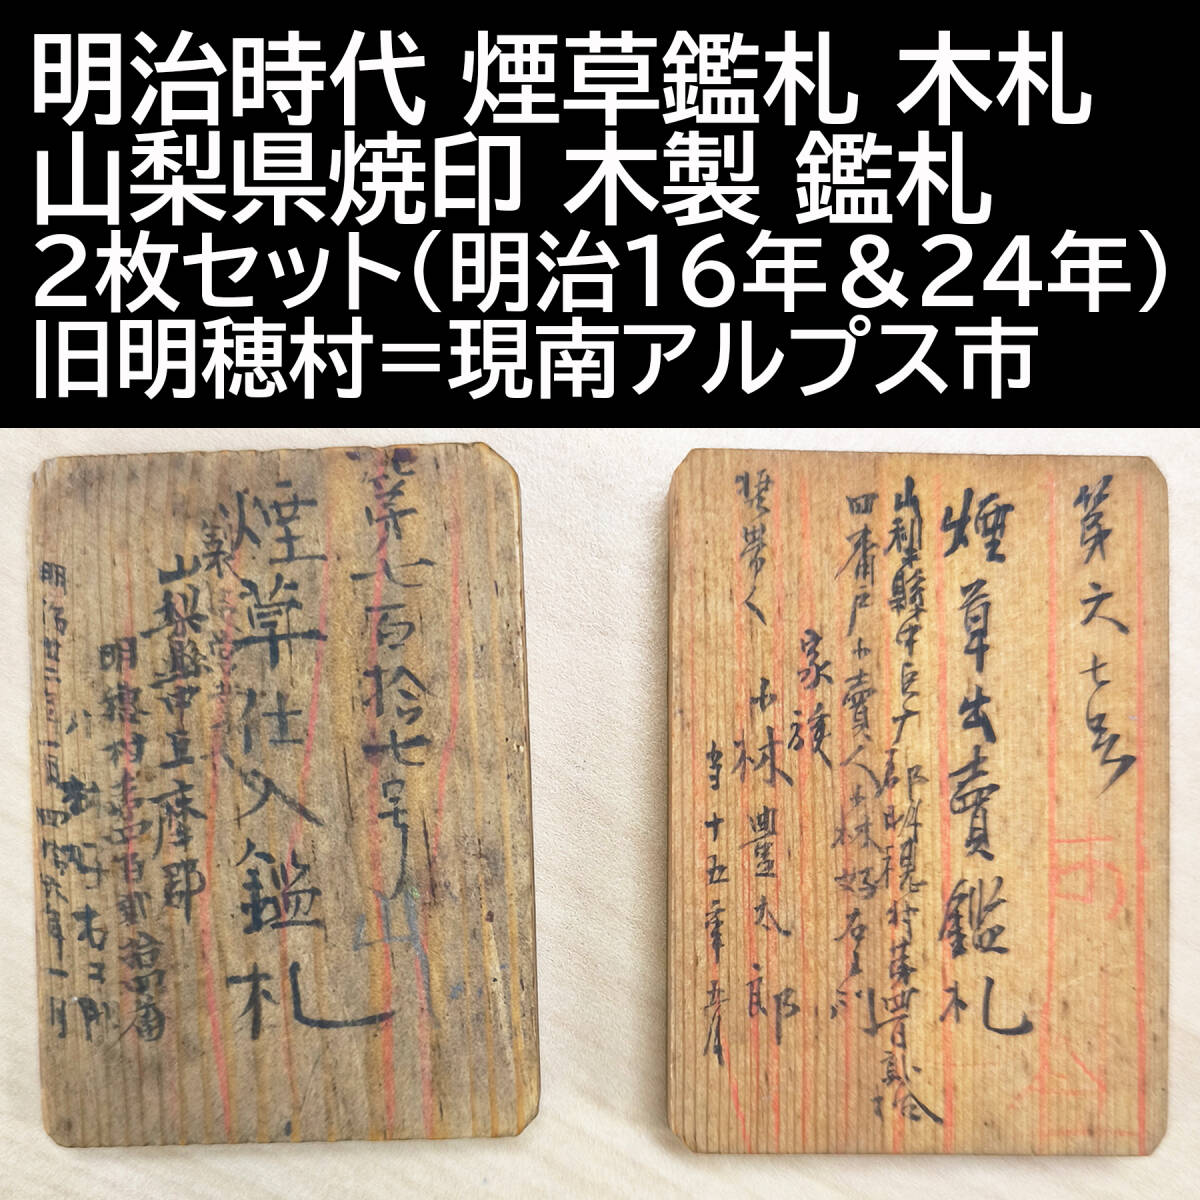 明治時代 煙草鑑札 木札
山梨県焼印 木製 鑑札
2枚セット（明治16年＆24年）
旧明穂村=現南アルプス市
第七百拾七号
煙草仕入鑑札
製
山梨縣中巨摩郡
明穂村
第六七号
煙草出賣鑑札
山梨縣中巨广郡明穂村第四百
四番戸小賣人小林好右
家族
携帯人 小林豊太郎
当十五年五月